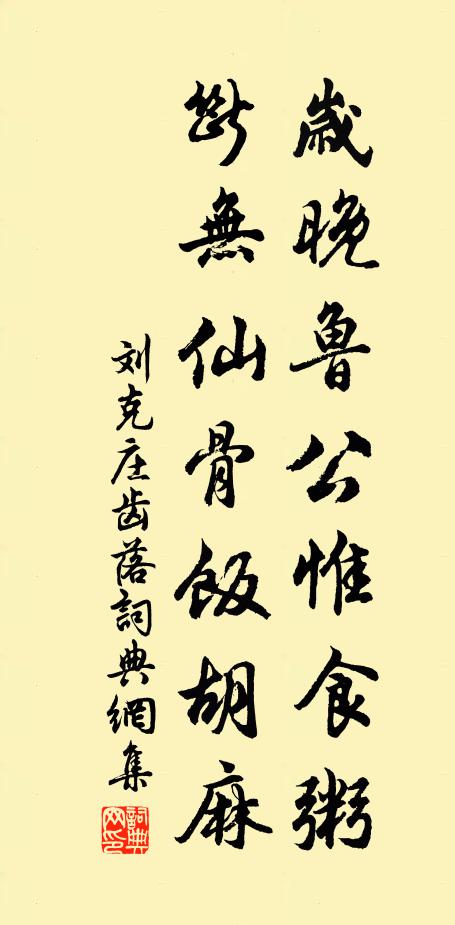 歲晚魯公惟食粥
斷無仙骨飯胡麻
刘克庄齿落詞典網集
詞典网印